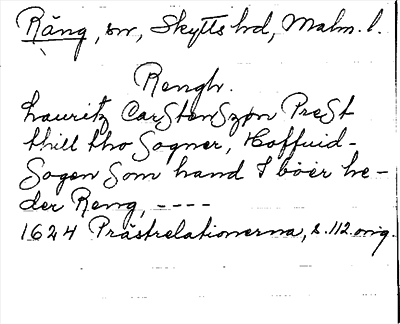 Räng, sn, Skytts hd, Malm. l.
Rengh.
Lauritz CarStenSzøn PreSt
thill tho Sogner, Hoffuid-
Sogen Som hand I boer he-
der Reng, ----
1624 Prästrelationerna, s. 112. orig.